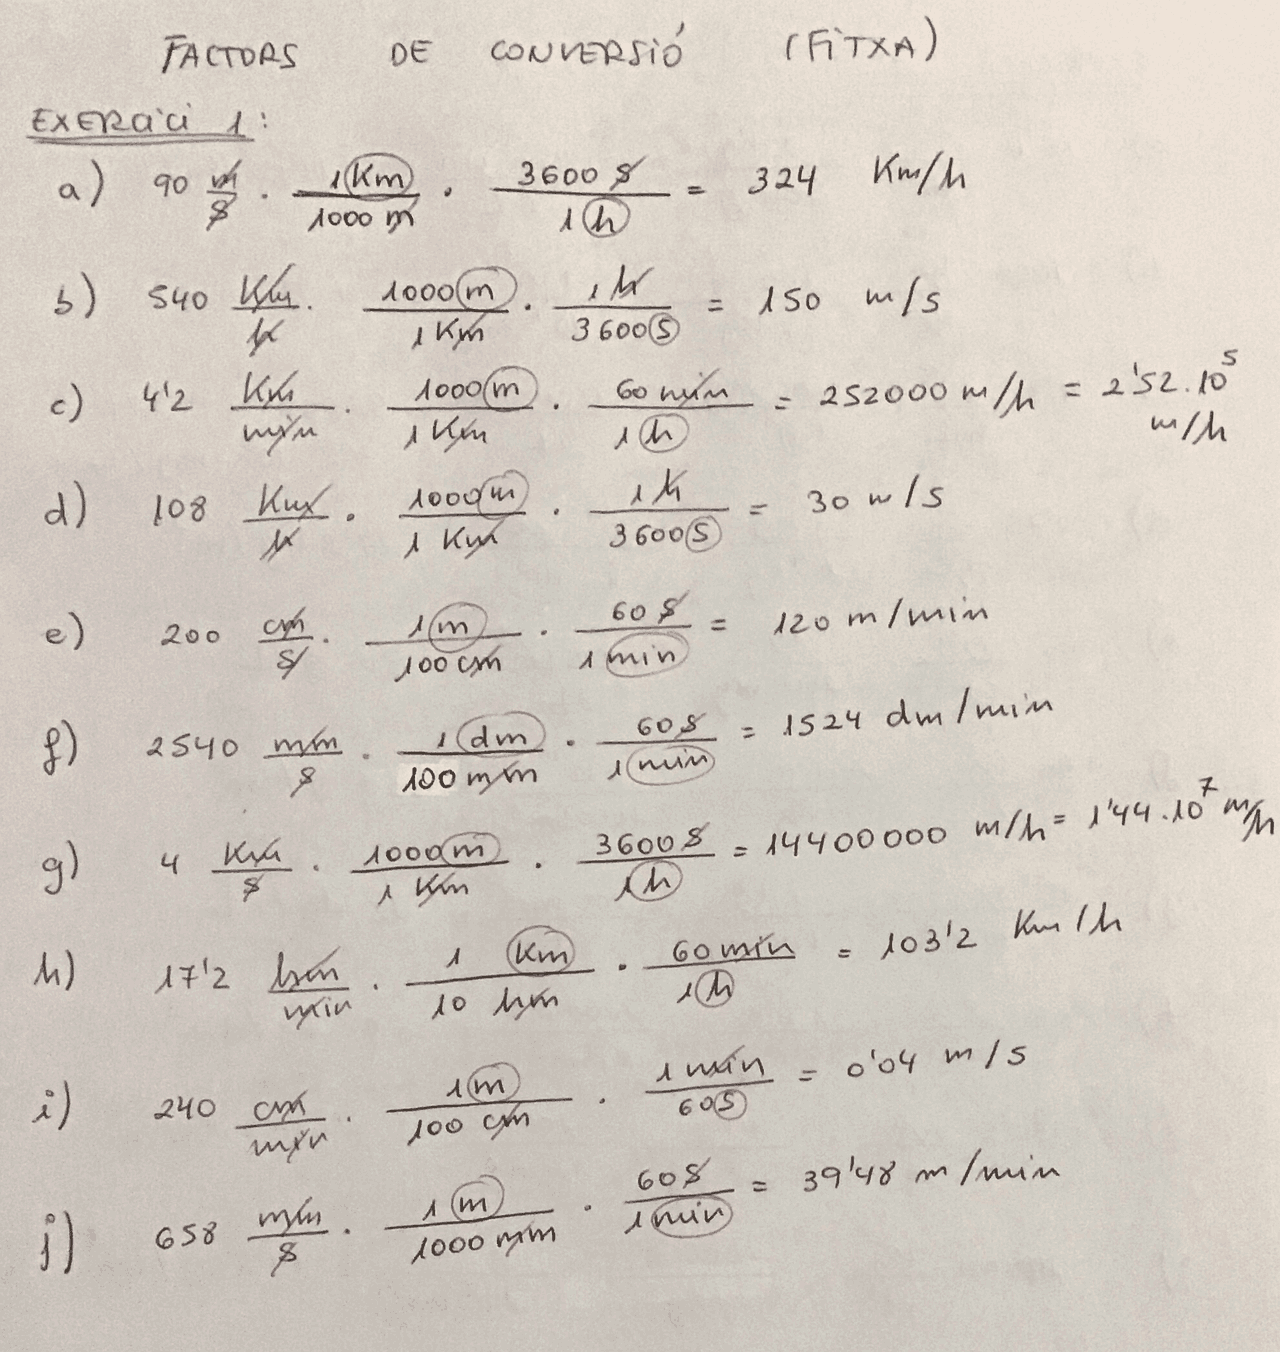 FACTORS DE CONVERSIÓ (FITXA)
EXERCICI 1:
a) 90 m/s · 1 Km/1000 m · 3600 s/1 h = 324 Km/h
b) 540 Km/h · 1000 m/1 Km · 1 h/3600 s = 150 m/s
c) 4'2 Km/min · 1000 m/1 Km · 60 min/1 h = 252000 m/h = 2'52·10⁵ m/h
d) 108 Km/h · 1000 m/1 Km · 1 h/3600 s = 30 m/s
e) 200 cm/s · 1 m/100 cm · 60 s/1 min = 120 m/min
f) 2540 mm/s · 1 dm/100 mm · 60 s/1 min = 1524 dm/min
g) 4 Km/s · 1000 m/1 Km · 3600 s/1 h = 14400000 m/h = 1'44·10⁷ m/h
h) 17'2 hm/min · 1 Km/10 hm · 60 min/1 h = 103'2 Km/h
i) 240 cm/min · 1 m/100 cm · 1 min/60 s = 0'04 m/s
j) 658 mm/s · 1 m/1000 mm · 60 s/1 min = 39'48 m/min